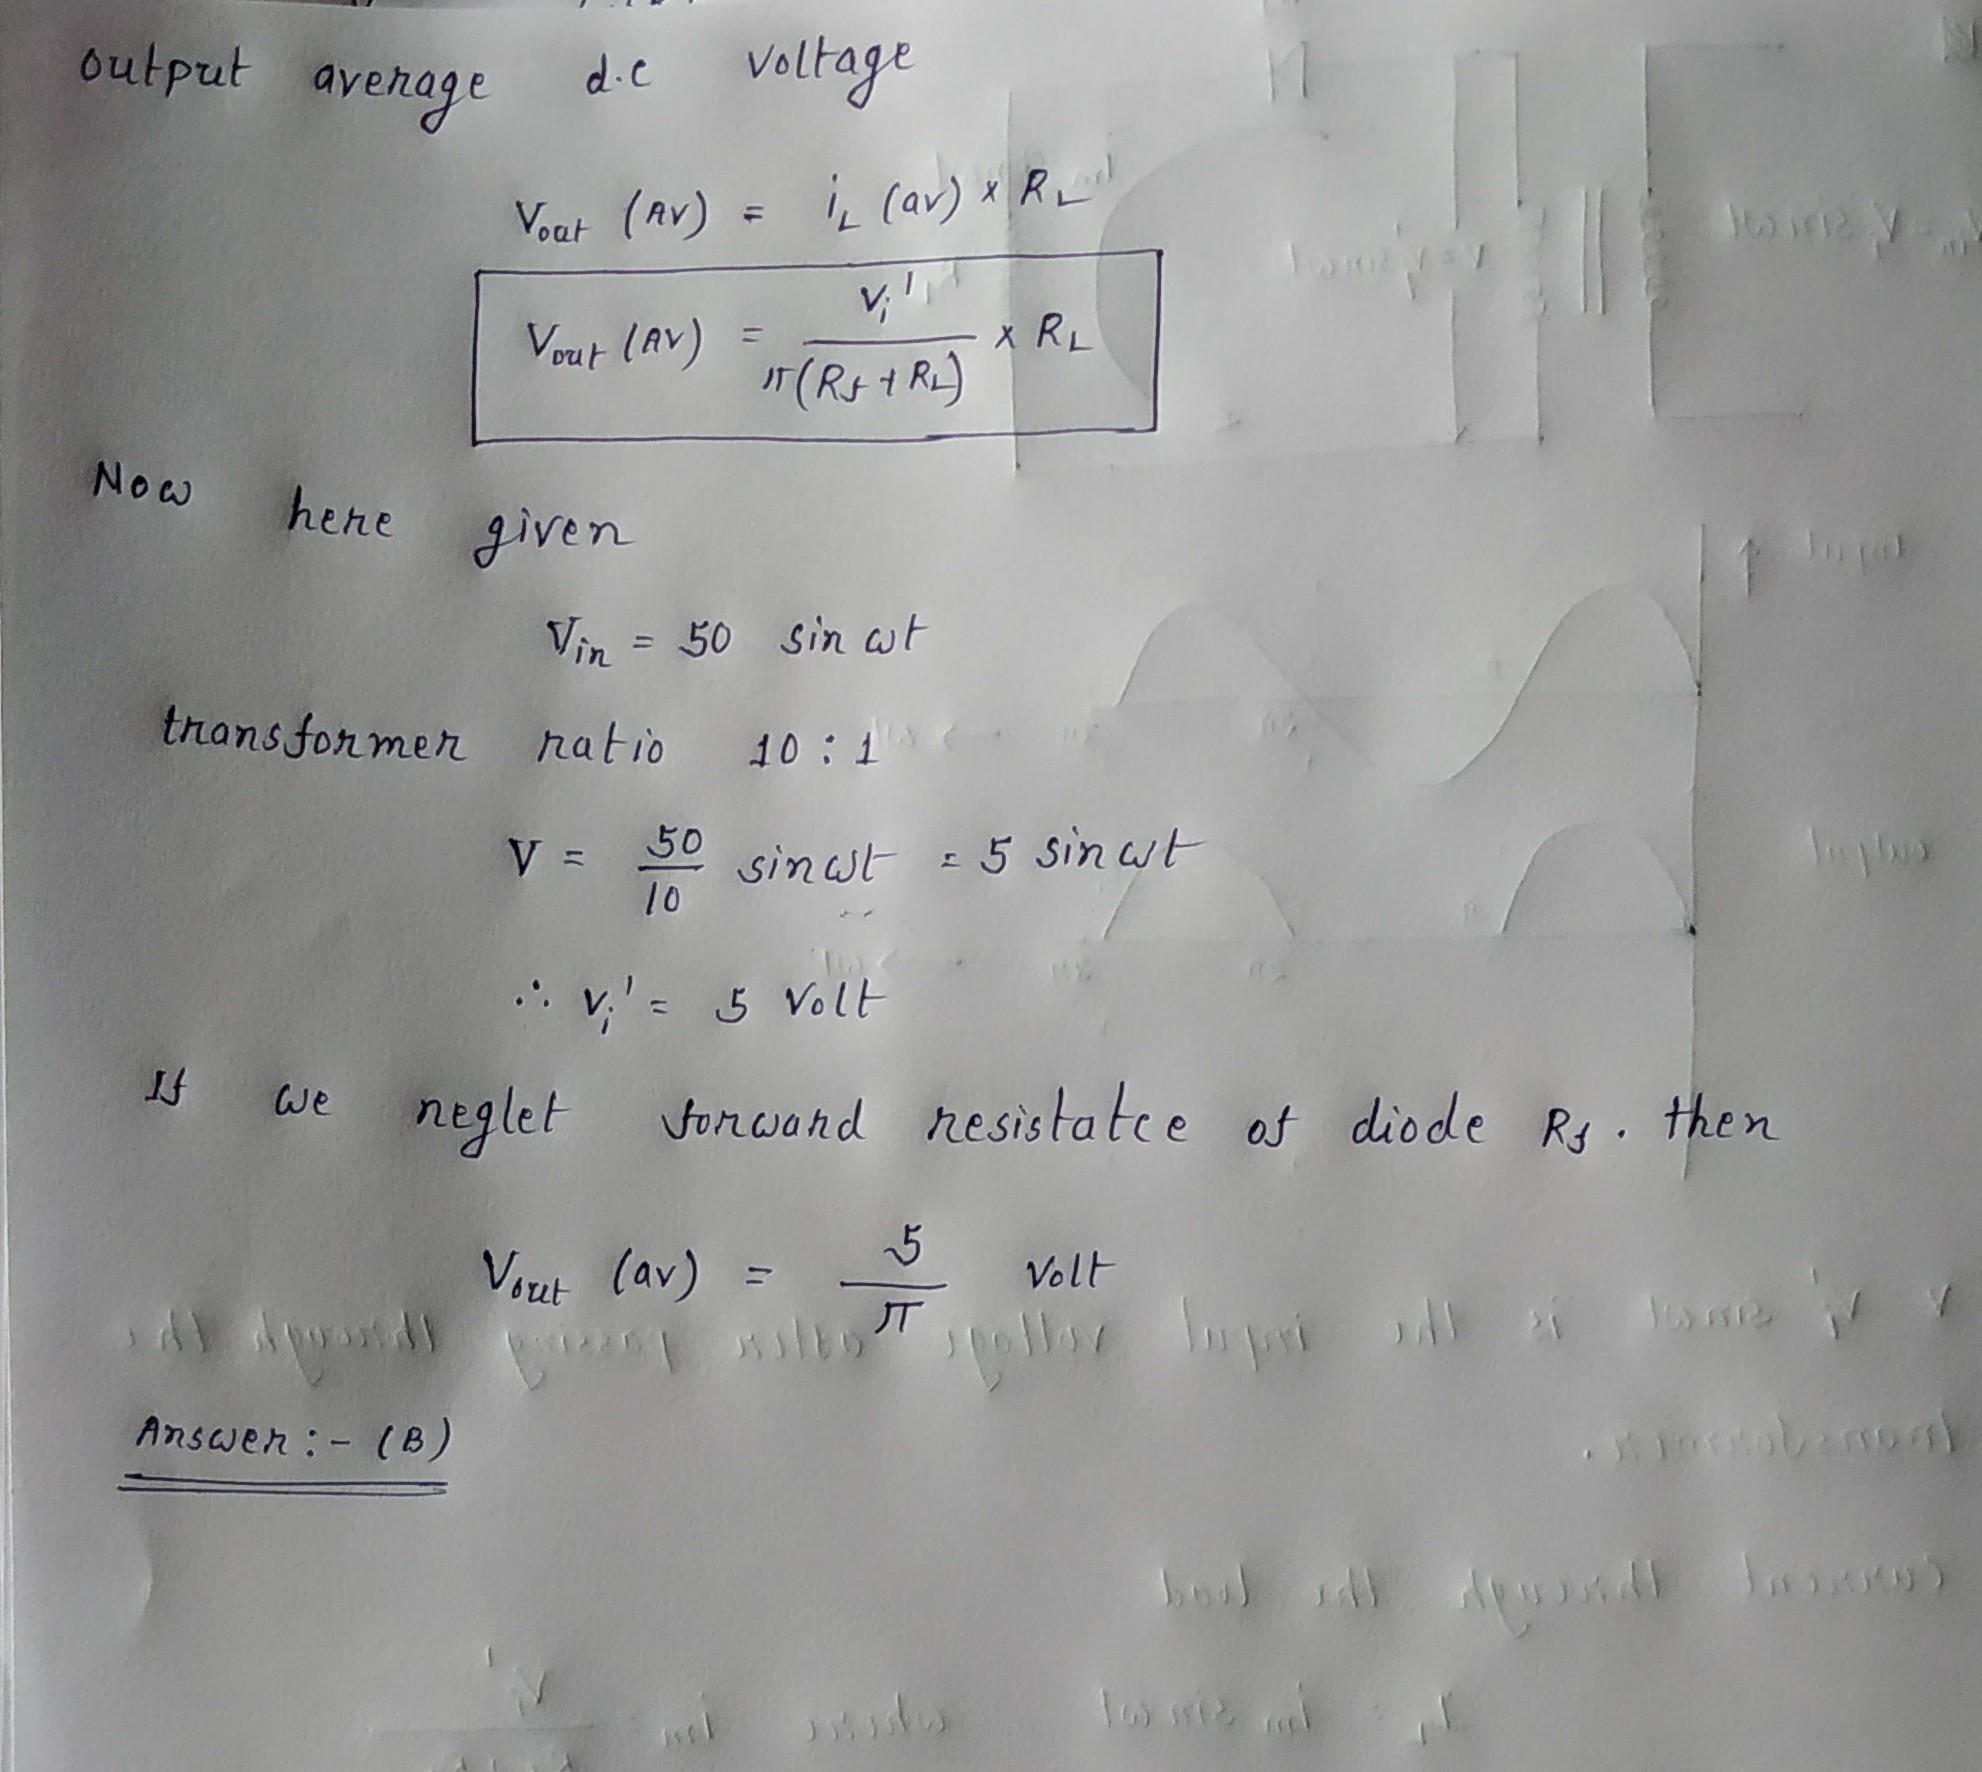 output average d.c voltage
Vout (AV) = iL (av) × RL
Vout (AV) = Vi' / π(Rf + RL) × RL
Now here given
Vin = 50 sin ωt
transformer ratio 10 : 1
V = 50/10 sin ωt = 5 sin ωt
∴ Vi' = 5 Volt
If we neglet forward resistatce of diode Rf. then
Vout (av) = 5/π Volt
Answer :- (B)